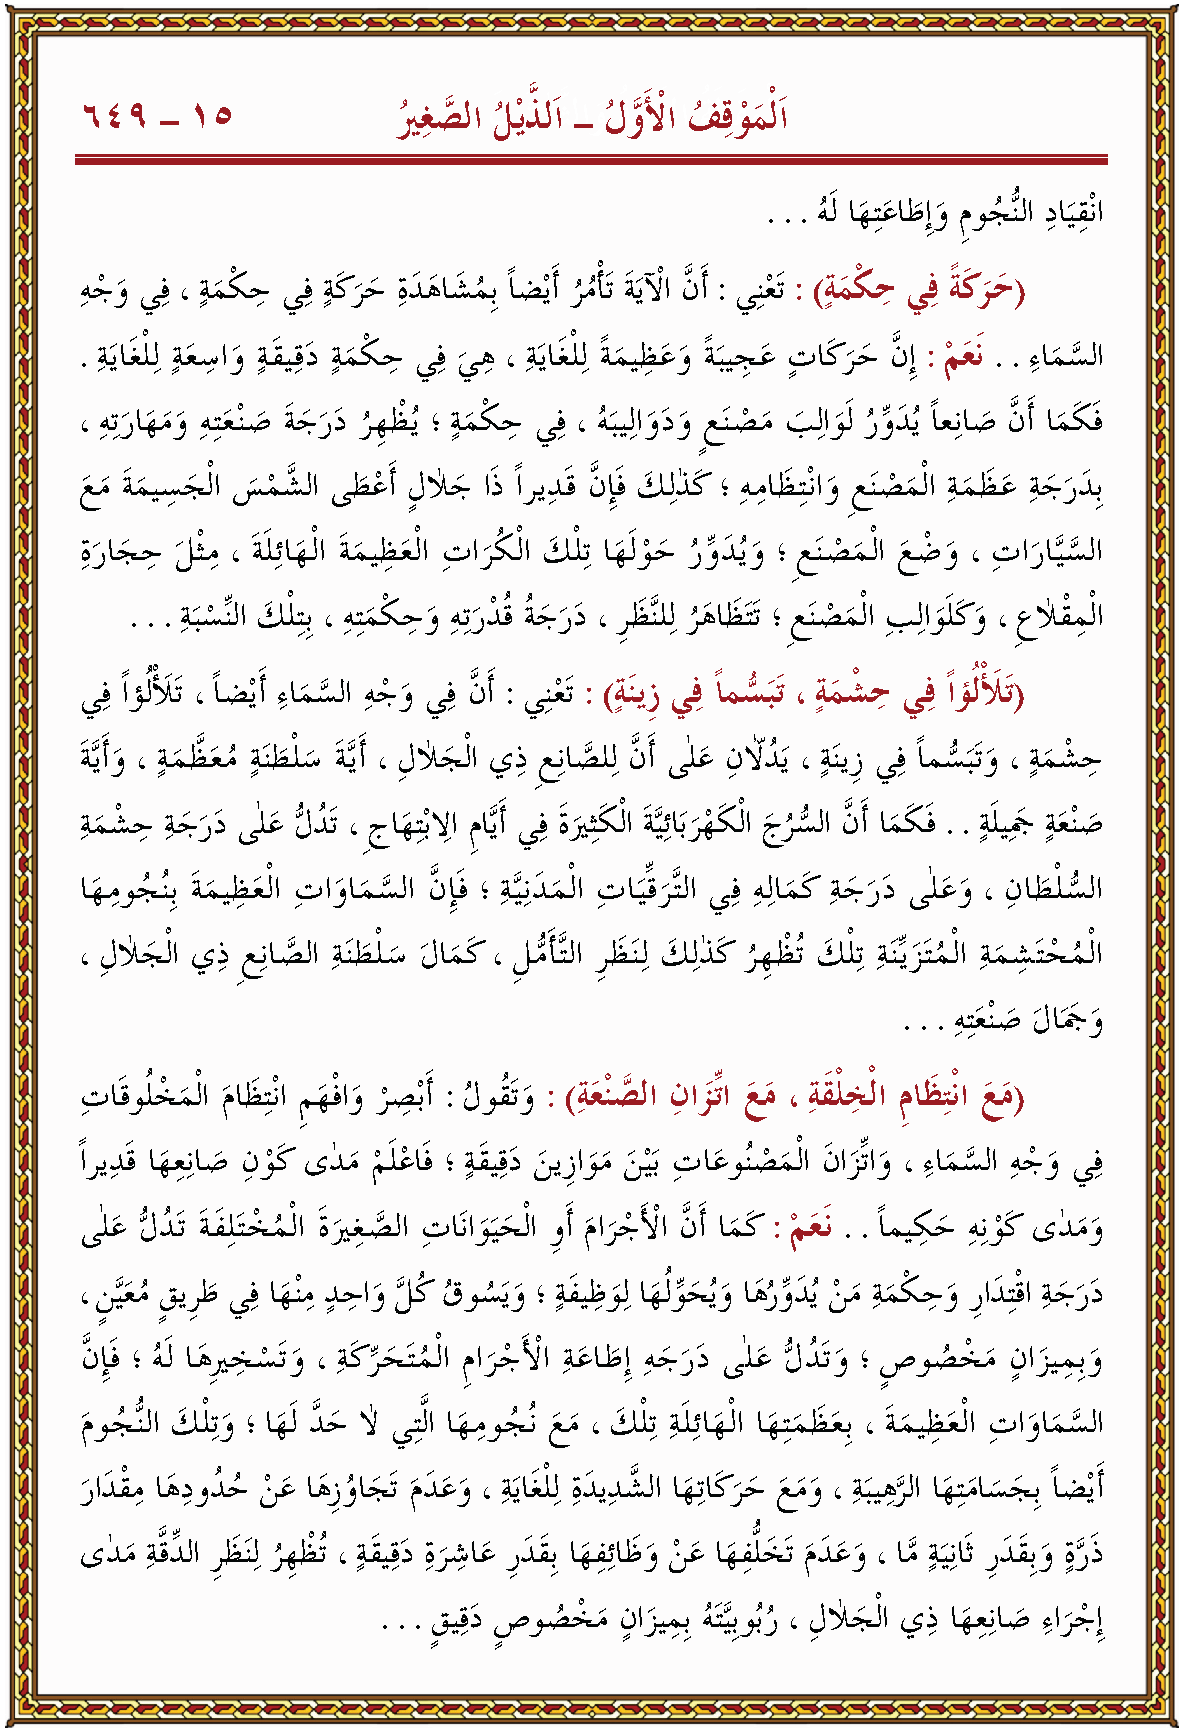 اَلْمَوْقِفُ الْأَوَّلُ – اَلذَّيْلُ الصَّغِيرُ ١٥ – ٦٤٩
انْقِيَادِ النُّجُومِ وَإِطَاعَتِهَا لَهُ . . .
(حَرَكَةً فِي حِكْمَةٍ) : تَعْنِي : أَنَّ الْآيَةَ تَأْمُرُ أَيْضاً بِمُشَاهَدَةِ حَرَكَةٍ فِي حِكْمَةٍ ، فِي وَجْهِ
السَّمَاءِ . . نَعَمْ : إِنَّ حَرَكَاتٍ عَجِيبَةً وَعَظِيمَةً لِلْغَايَةِ ، هِيَ فِي حِكْمَةٍ دَقِيقَةٍ وَاسِعَةٍ لِلْغَايَةِ .
فَكَمَا أَنَّ صَانِعاً يُدَوِّرُ لَوَالِبَ مَصْنَعٍ وَدَوَالِيبَهُ ، فِي حِكْمَةٍ ؛ يُظْهِرُ دَرَجَةَ صَنْعَتِهِ وَمَهَارَتِهِ ،
بِدَرَجَةِ عَظَمَةِ الْمَصْنَعِ وَانْتِظَامِهِ ؛ كَذٰلِكَ فَإِنَّ قَدِيراً ذَا جَلَالٍ أَعْطَى الشَّمْسَ الْجَسِيمَةَ مَعَ
السَّيَّارَاتِ ، وَضْعَ الْمَصْنَعِ ؛ وَيُدَوِّرُ حَوْلَهَا تِلْكَ الْكُرَاتِ الْعَظِيمَةَ الْهَائِلَةَ ، مِثْلَ حِجَارَةِ
الْمِقْلَاعِ ، وَكَلَوَالِبِ الْمَصْنَعِ ؛ تَتَظَاهَرُ لِلنَّظَرِ ، دَرَجَةُ قُدْرَتِهِ وَحِكْمَتِهِ ، بِتِلْكَ النِّسْبَةِ . . .
(تَلَأْلُؤاً فِي حِشْمَةٍ ، تَبَسُّماً فِي زِينَةٍ) : تَعْنِي : أَنَّ فِي وَجْهِ السَّمَاءِ أَيْضاً ، تَلَأْلُؤاً فِي
حِشْمَةٍ ، وَتَبَسُّماً فِي زِينَةٍ ، يَدُلَّانِ عَلٰى أَنَّ لِلصَّانِعِ ذِي الْجَلَالِ ، أَيَّةَ سَلْطَنَةٍ مُعَظَّمَةٍ ، وَأَيَّةَ
صَنْعَةٍ جَمِيلَةٍ . . فَكَمَا أَنَّ السُّرُجَ الْكَهْرَبَائِيَّةَ الْكَثِيرَةَ فِي أَيَّامِ الِابْتِهَاجِ ، تَدُلُّ عَلٰى دَرَجَةِ حِشْمَةِ
السُّلْطَانِ ، وَعَلٰى دَرَجَةِ كَمَالِهِ فِي التَّرَقِّيَاتِ الْمَدَنِيَّةِ ؛ فَإِنَّ السَّمَاوَاتِ الْعَظِيمَةَ بِنُجُومِهَا
الْمُحْتَشِمَةِ الْمُتَزَيِّنَةِ تِلْكَ تُظْهِرُ كَذٰلِكَ لِنَظَرِ التَّأَمُّلِ ، كَمَالَ سَلْطَنَةِ الصَّانِعِ ذِي الْجَلَالِ ،
وَجَمَالَ صَنْعَتِهِ . . .
(مَعَ انْتِظَامِ الْخِلْقَةِ ، مَعَ اتِّزَانِ الصَّنْعَةِ) : وَتَقُولُ : أَبْصِرْ وَافْهَمِ انْتِظَامَ الْمَخْلُوقَاتِ
فِي وَجْهِ السَّمَاءِ ، وَاتِّزَانَ الْمَصْنُوعَاتِ بَيْنَ مَوَازِينَ دَقِيقَةٍ ؛ فَاعْلَمْ مَدٰى كَوْنِ صَانِعِهَا قَدِيراً
وَمَدٰى كَوْنِهِ حَكِيماً . . نَعَمْ : كَمَا أَنَّ الْأَجْرَامَ أَوِ الْحَيَوَانَاتِ الصَّغِيرَةَ الْمُخْتَلِفَةَ تَدُلُّ عَلٰى
دَرَجَةِ اقْتِدَارِ وَحِكْمَةِ مَنْ يُدَوِّرُهَا وَيُحَوِّلُهَا لِوَظِيفَةٍ ؛ وَيَسُوقُ كُلَّ وَاحِدٍ مِنْهَا فِي طَرِيقٍ مُعَيَّنٍ ،
وَبِمِيزَانٍ مَخْصُوصٍ ؛ وَتَدُلُّ عَلٰى دَرَجَهِ إِطَاعَةِ الْأَجْرَامِ الْمُتَحَرِّكَةِ ، وَتَسْخِيرِهَا لَهُ ؛ فَإِنَّ
السَّمَاوَاتِ الْعَظِيمَةَ ، بِعَظَمَتِهَا الْهَائِلَةِ تِلْكَ ، مَعَ نُجُومِهَا الَّتِي لَا حَدَّ لَهَا ؛ وَتِلْكَ النُّجُومَ
أَيْضاً بِجَسَامَتِهَا الرَّهِيبَةِ ، وَمَعَ حَرَكَاتِهَا الشَّدِيدَةِ لِلْغَايَةِ ، وَعَدَمَ تَجَاوُزِهَا عَنْ حُدُودِهَا مِقْدَارَ
ذَرَّةٍ وَبِقَدَرِ ثَانِيَةٍ مَّا ، وَعَدَمَ تَخَلُّفِهَا عَنْ وَظَائِفِهَا بِقَدَرِ عَاشِرَةِ دَقِيقَةٍ ، تُظْهِرُ لِنَظَرِ الدِّقَّةِ مَدٰى
إِجْرَاءِ صَانِعِهَا ذِي الْجَلَالِ ، رُبُوبِيَّتَهُ بِمِيزَانٍ مَخْصُوصٍ دَقِيقٍ . . .